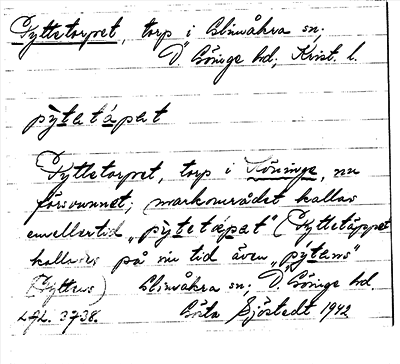 Pyttetorpet, torp i Glimåkra sn;
Ö Göinge hd; Krist. l.
pỳtetápet
Pyttetorpet, torp i Röninge, nu
försvunnet; markområdet kallas
emellertid „pỳtetæpet" (Pyttetäppet
kallades på min tid även „pytens"
(Pyttens) Glimåkra sn; Ö. Göinge hd.
Gösta Sjöstedt 1942